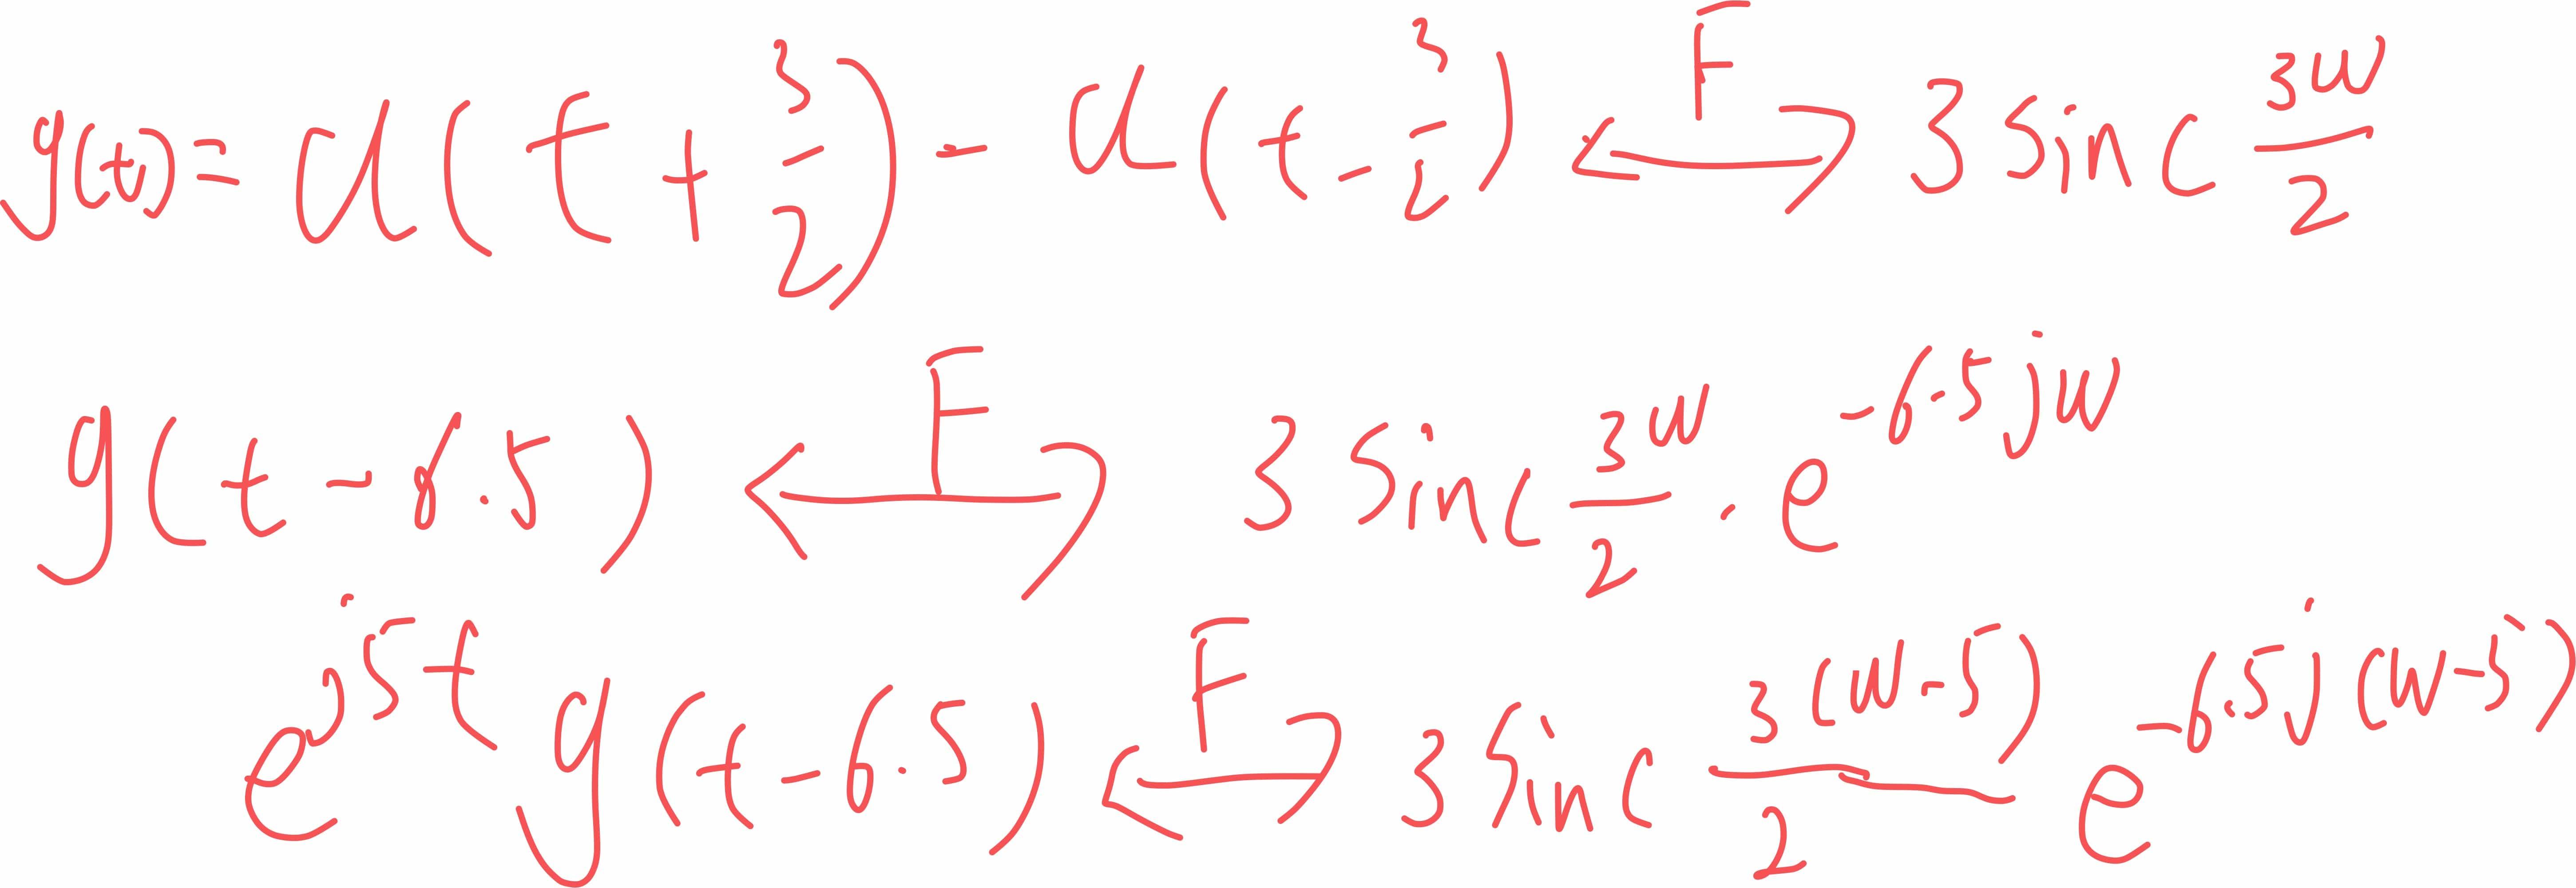 g(t) = u(t + 3/2) - u(t - 3/2) ⟷F 3 sinc 3w/2
g(t - 6.5) ⟷F 3 sinc 3w/2 · e^{-6.5jw}
e^{j5t} g(t - 6.5) ⟷F 3 sinc 3(w-5)/2 e^{-6.5j(w-5)}